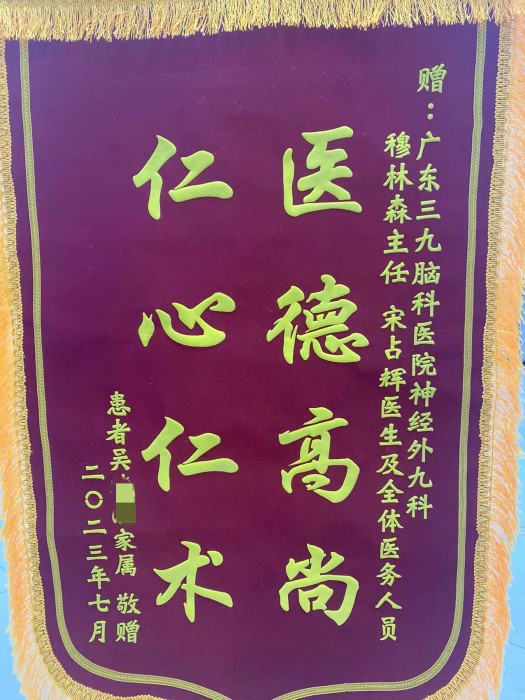 赠：广东三九脑科医院神经外九科
穆林森主任 宋占辉医生及全体医务人员
医德高尚
仁心仁术
患者吴 家属 敬赠
二〇二三年七月